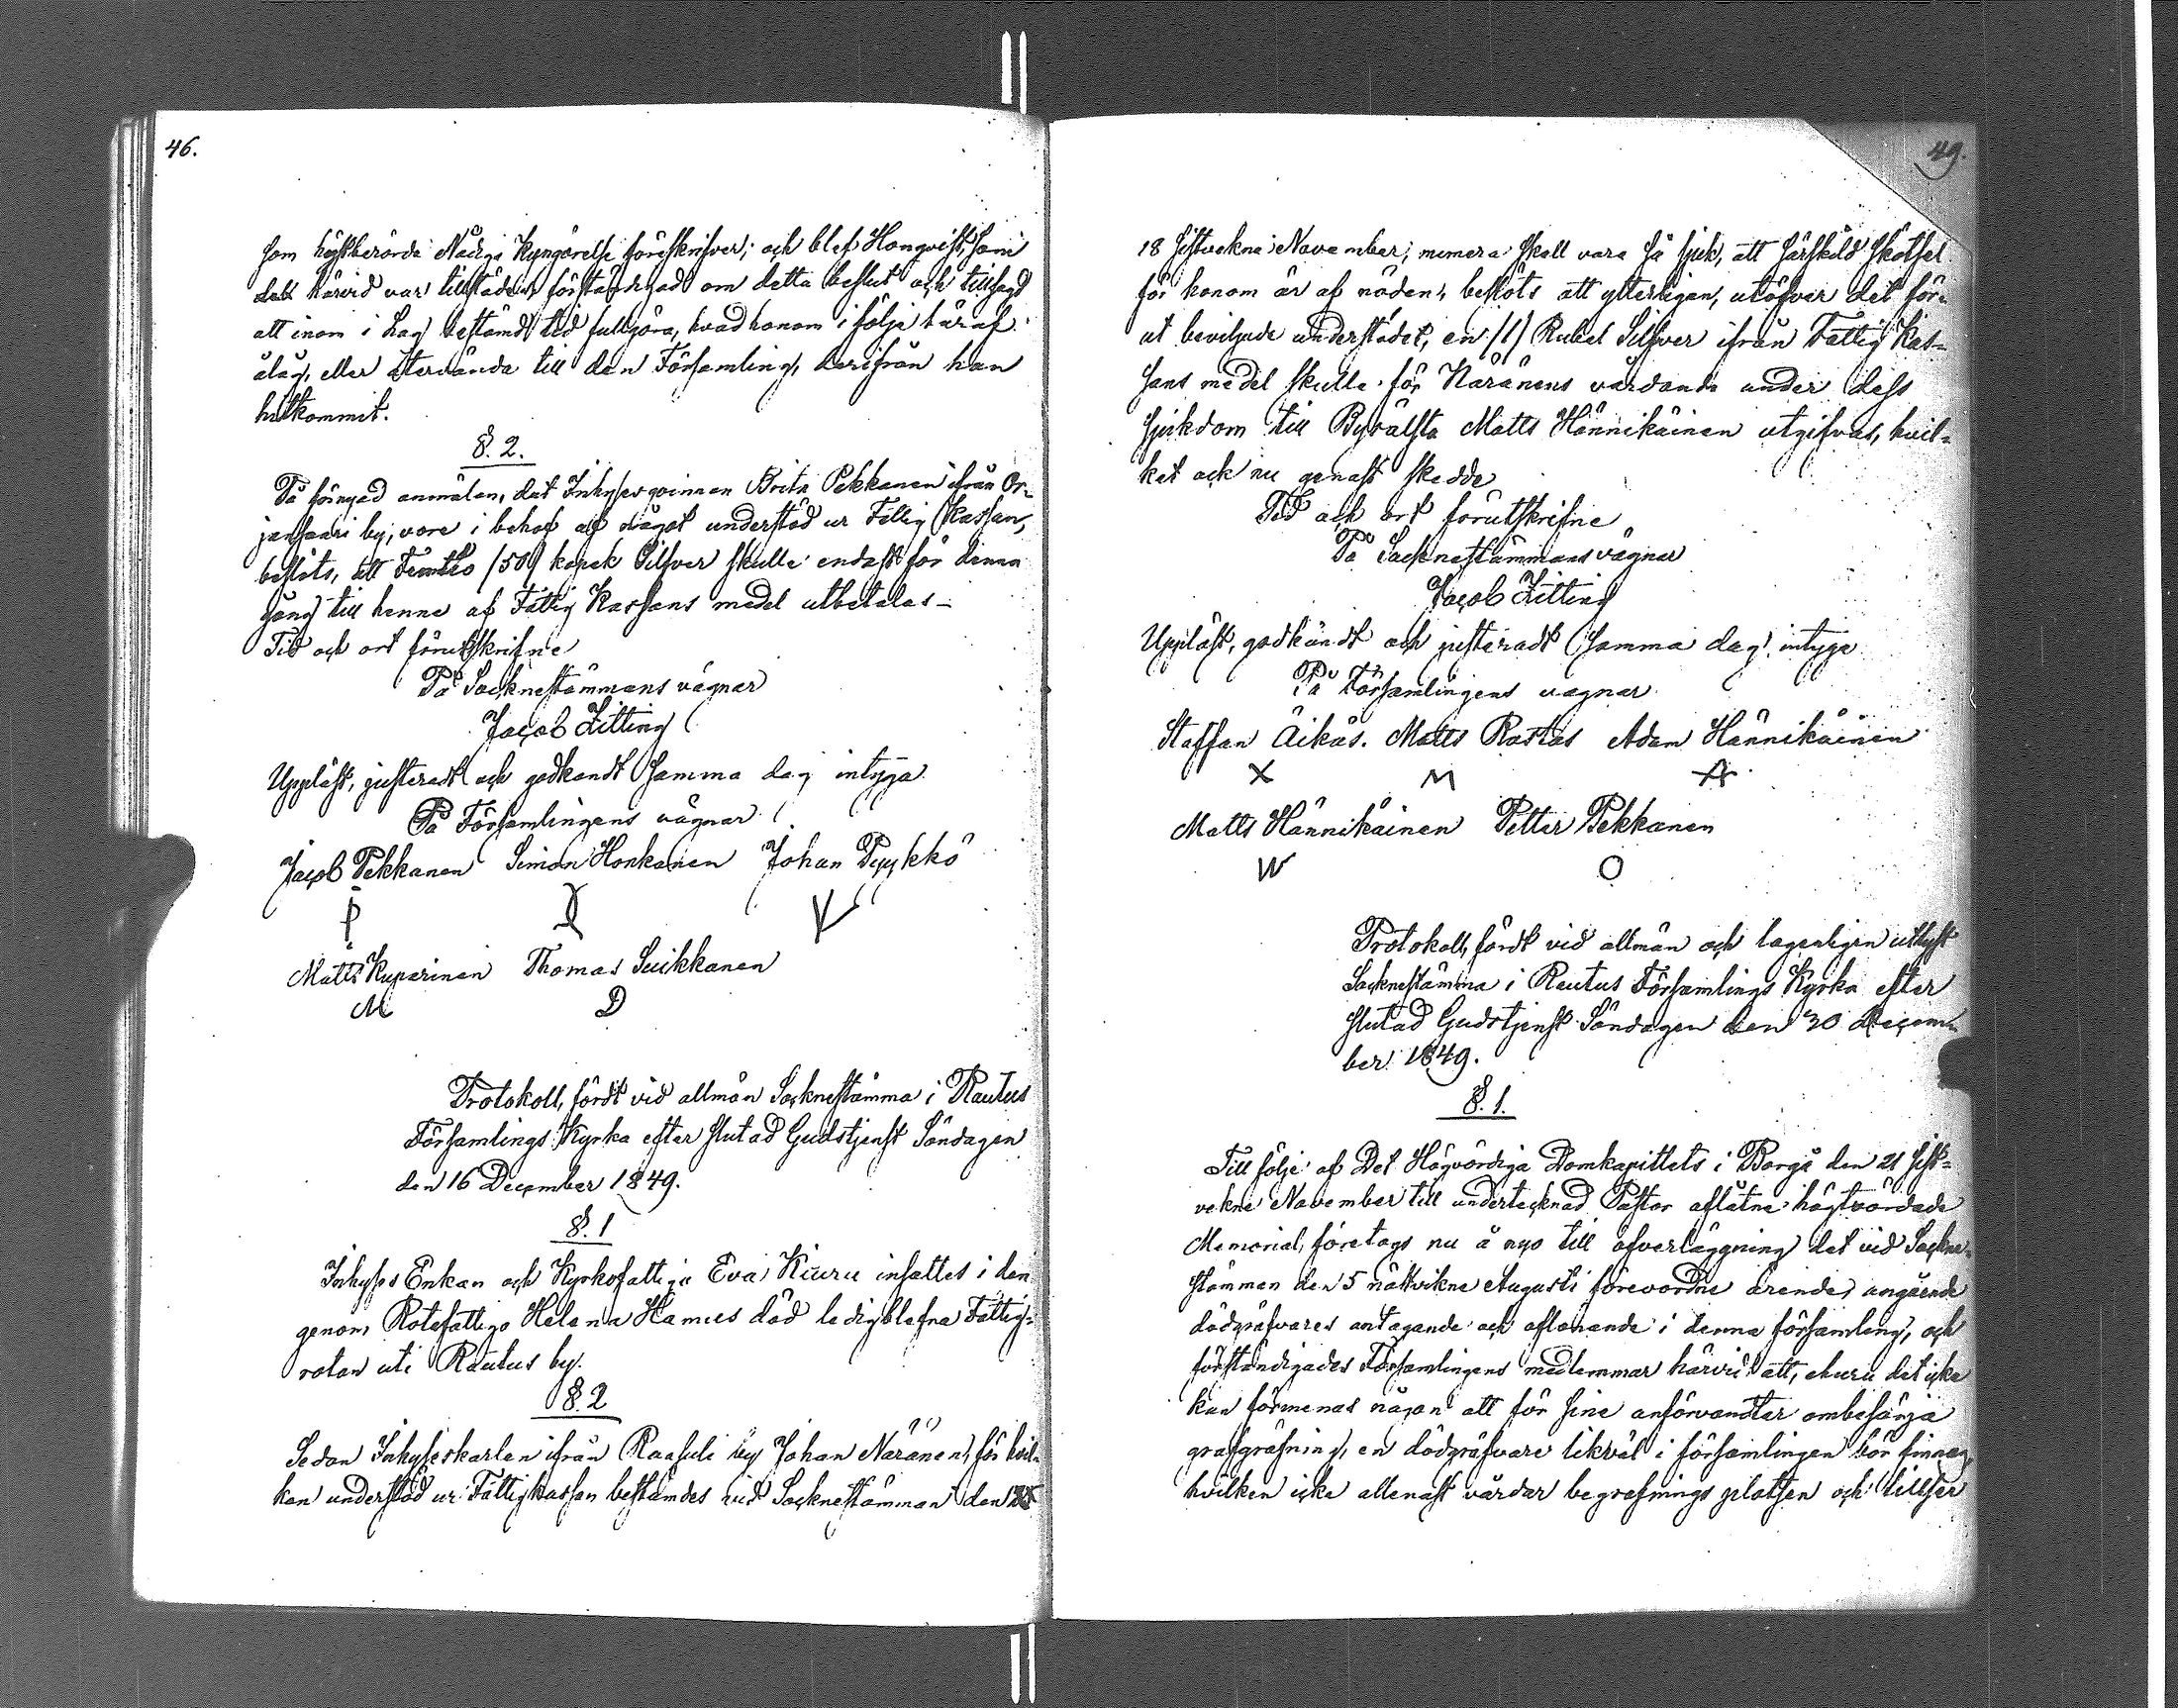 46.
som högstberörde Nådiga Kungörelse föreskrifver; och blef Honqvist, som
härvid var tillstädes, förständigad om detta beslut och tillsagd
att inom i Lag bestämd tid fullgöra, hvad honom i följe häraf
ålåg, eller återvända till den Församling, derifrån han
hitkommit.
§. 2.
På förnyad anmälan, det Inhysesqvinnan Brita Pekkanen ifrån Or-
jansaari by, vore i behof af något understöd ur Fattig Kassan,
beslöts, att Femtio (50) kopek Silfver skulle endast för denna
gång till henne af Fattig Kassans medel utbetalas –
Tid och ort förutskrifne
På Socknestämmans vägnar
Jacob Zitting
Uppläst, justeradt och godkändt samma dag intyga
På Församlingens vägnar
Jacob Pekkanen Simon Honkanen Johan Pyykkö
Matts Kuparinen Thomas Suikkanen
M D
Protokoll, fördt vid allmän Socknestämma i Rautus
Församlings Kyrka efter slutad Gudstjenst Söndagen
den 16 December 1849.
§. 1
Inhyses Enkan och Kyrkofattiga Eva Kiuru insattes i den
genom Rotefattiga Helena Hamus död lediglefna Fattig-
rotan uti Rautus by.
§. 2
Sedan Inhyseskarlen ifrån Raasuli by Johan Näränen, för hvil-
ken understöd ur Fattigkassan bestämdes vid Socknestämman den
49.
18 sistvekne November, numera skall vara så sjuk, att särskild skötsel
för honom är af nöden, beslöts att ytterligare, utöfver det för-
ut beviljade understödet, en (1) Rubel Silfver ifrån Fattig Kas-
sans medel skulle för Näränens vårdande under dess
sjukdom till Byrålsta Matts Hännikäinen utgifvas, hvil-
ket ock nu genast skedde
Tid och ort förutskrifne
På Socknestämmans vägnar
Jacob Zitting
Uppläst, godkändt och justeradt samma dag, intyga
På Församlingens vägnar
Staffan Äikäs. Matts Rastas Adam Hännikäinen
X M A
Matts Hännikäinen Petter Pekkanen
W O
Protokoll, fördt vid allmän och lagenligen utlyst
Socknestämma i Rautus Församlings Kyrka efter
slutad Gudstjenst Söndagen den 30 Decem-
ber 1849.
§. 1.
Till följe af Det Högvördiga Domkapitlets i Borgå den 21 sist-
vekne November till undertecknad Pastor aflåtne högtvördade
Memorial, företogs nu å nyo till öfverläggning det vid Sockne-
stämman den 5 nästvikne Augusti förevordne ärende, angående
dödgräfvares antagande och aflönande i denna församling, och
förständigades Församlingens medlemmar härvid att, ehuru det icke
kan förmenas någon att för sine anförvandter ombesörja
grafgräfning, en dödgräfvare likväl i församlingen bör finnas,
hvilken icke allenast vårdar begrafnings platsen och tillser